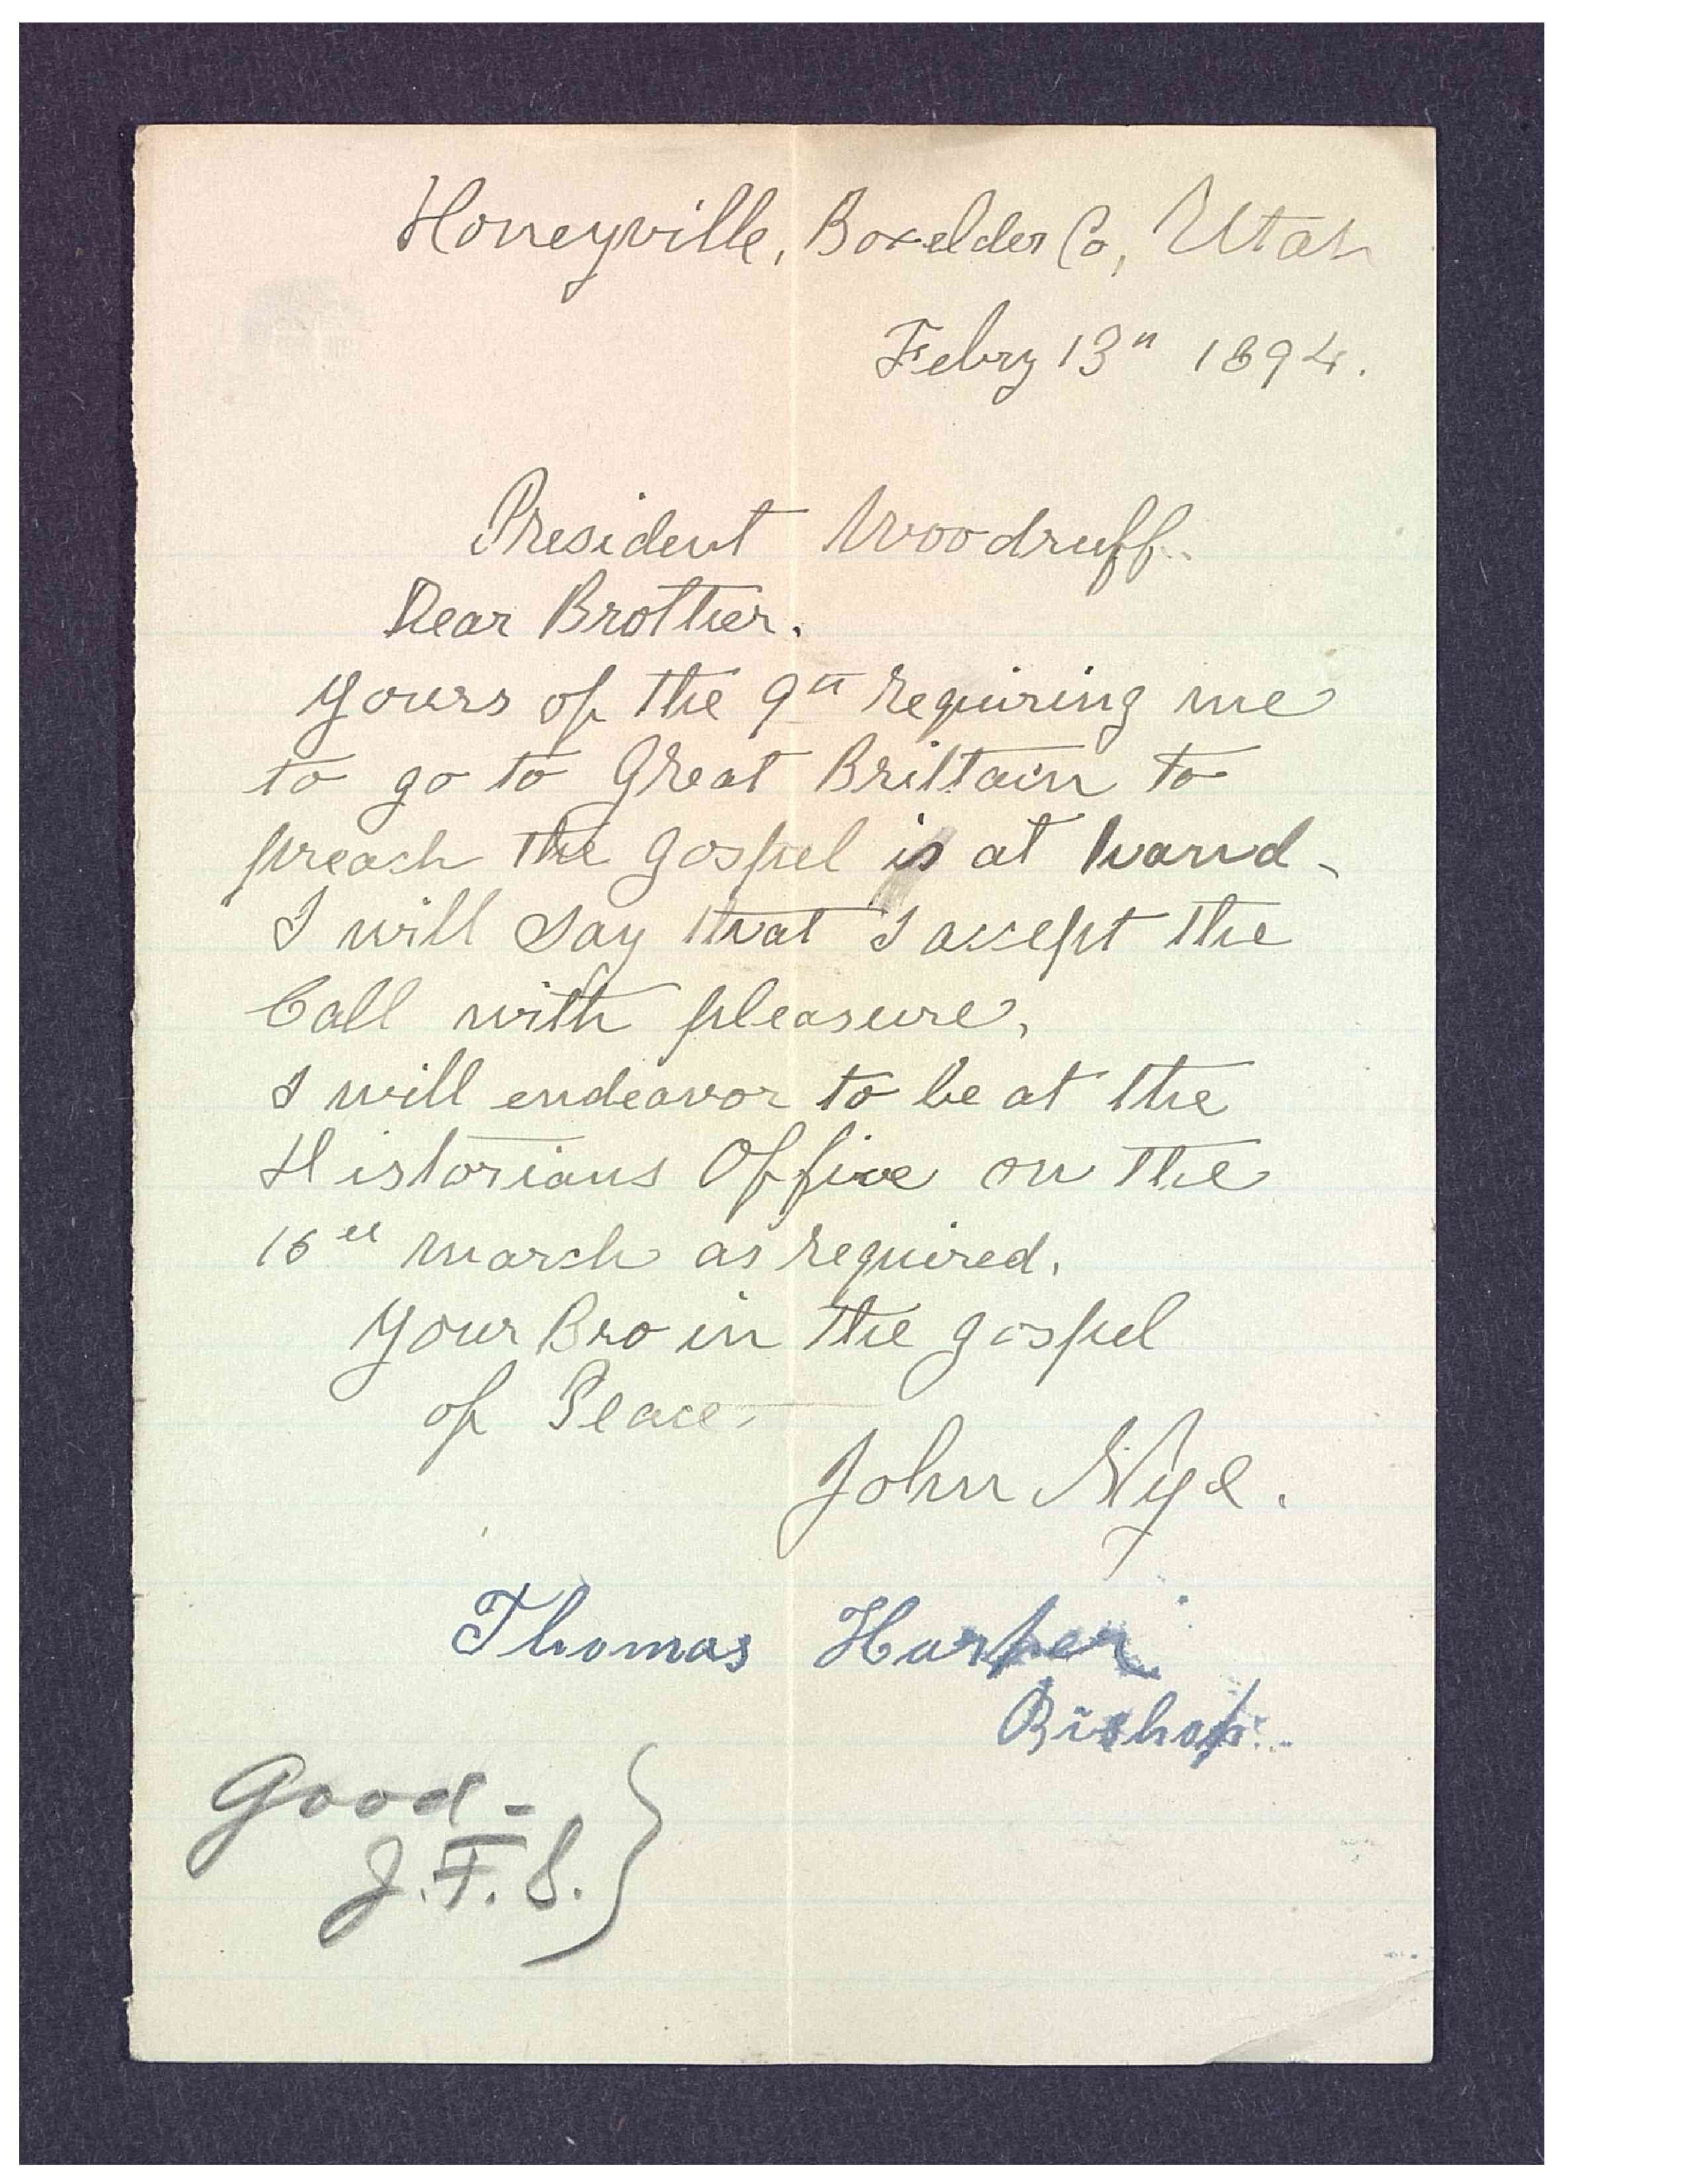 Honeyville, Boxelder Co, Utah
Febry 13th 1894.
President Woodruff.
Dear Brother.
Yours of the 9th requiring me
to go to Great Brittain to
preach the gospel is at hand-
I will say that I accept the
Call with pleasure,
I will endeavor to be at the
Historians Office on the
16th march as required.
Your Bro in the gospel
of Peace.
John Nye.
Thomas Harper
Bishop.
Good-
J.F.S.